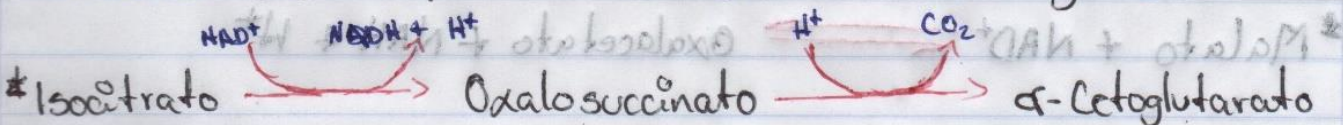 NAD+ NADH + H+ H+ CO2
*Isocitrato → Oxalosuccinato → α-Cetoglutarato